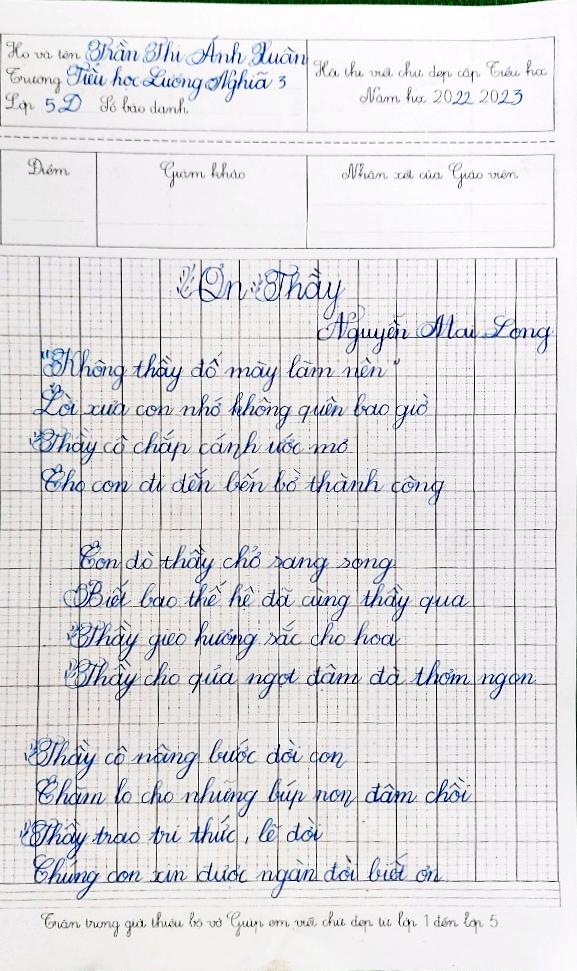 Họ và tên Trần Thi Ánh Xuân
Trường Tiểu học Lương Nghĩa 3
Lớp 5D Số báo danh
Hội thi viết chữ đẹp cấp Tiểu học
Năm học 2022 2023
Điểm
Giám khảo
Nhận xét của Giáo viên
Ơn Thầy
Nguyễn Mai Long
"Không thầy đố mày làm nên"
Lời xưa con nhớ không quên bao giờ
Thầy cô chắp cánh ước mơ
Cho con đi đến bến bờ thành công
Con đò thầy chở sang song
Biết bao thế hệ đã cùng thầy qua
Thầy gieo hương sắc cho hoa
Thầy cho qủa ngọt đâm đà thơm ngon
Thầy cô nâng bước đời con
Chăm lo cho những búp non đâm chồi
Thầy trao tri thức, lẽ đời
Chúng con xin được ngàn đời biết ơn
Trân trọng giới thiệu bộ vở Giúp em viết chữ đẹp từ lớp 1 đến lớp 5